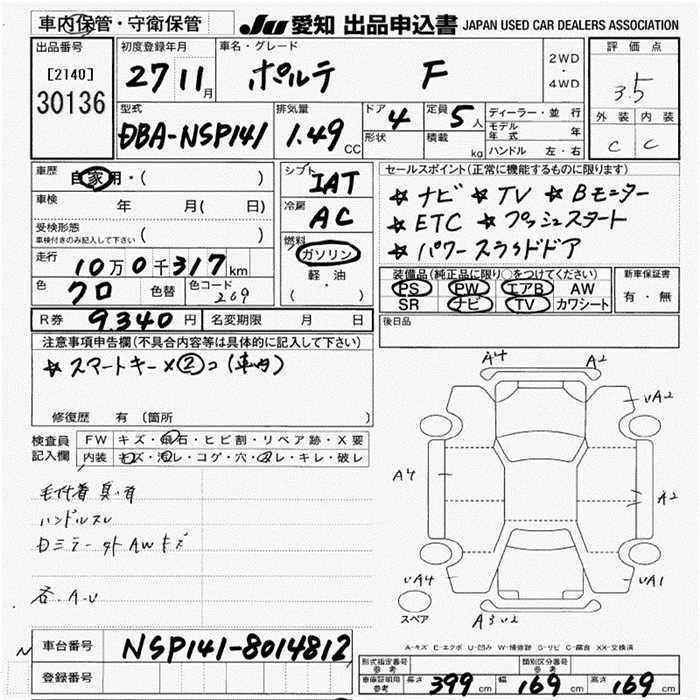 車内保管・守衛保管
JU 愛知 出品申込書 JAPAN USED CAR DEALERS ASSOCIATION
出品番号
[2140]
30136
初度登録年月
27 11 月
車名・グレード
ポルテ F
2WD
・
4WD
評価点
3.5
外装 内装
C C
型式
DBA-NSP141
排気量
1.49 CC
ドア 4
形状
定員 5 人
積載 kg
ディーラー・並行
モデル年式 年
ハンドル 左・右
車歴
自家用・( )
車検
年 月( 日)
受検形態
車検付きのみ記入して下さい ( )
走行
10万0千317km
色
クロ
色替
色コード
209
シフト
IAT
冷房
AC
燃料
ガソリン
軽油
( ・ )
セールスポイント(正常に機能するものに限ります)
☆ ナビ ☆ TV ☆ Bモニター
☆ ETC ☆ プッシュスタート
☆ パワースライドドア
装備品(純正品に限り○をつけてください)
PS PW エアB AW
SR ナビ TV カワシート
新車保証書
有・無
R券 9.340 円
名変期限 月 日
後日品
注意事項申告欄(不具合内容等は具体的に記入して下さい)
☆ スマートキー×②コ(車内)
修復歴 有 (箇所
検査員記入欄
FW キズ・飛石・ヒビ割・リペア跡・X要
内装 キズ・汚レ・コゲ・穴・スレ・キレ・破レ
ハンドルスレ
Dミラー 外 AW キズ
各 A-U
A4 A2
UA2
A4
A2
UA4 UA1
スペア
A3U2
A-キズ E-エクボ U-凹み W-補修跡 S-サビ C-腐食 XX-交換済
N
車台番号
NSP141-8014812
登録番号
形式指定番号 参考
類別区分番号 参考
車庫証明用 参考
長さ 399 cm 幅 169 cm 高さ 169 cm